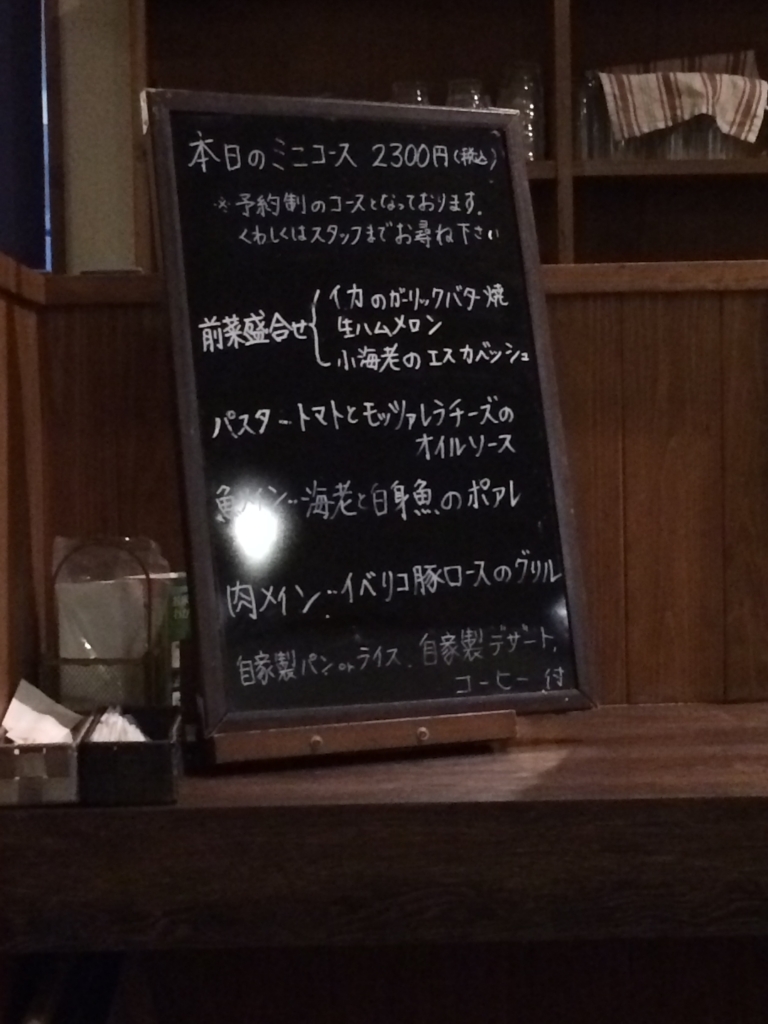 本日のミニコース 2300円(税込)
※予約制のコースとなっております。
くわしくはスタッフまでお尋ね下さい
前菜盛合せ{イカのガーリックバター焼
生ハムメロン
小海老のエスカベッシュ
パスタ…トマトとモッツァレラチーズの
オイルソース
魚メイン…海老と白身魚のポアレ
肉メイン…イベリコ豚ロースのグリル
自家製パンorライス、自家製デザート、
コーヒー付